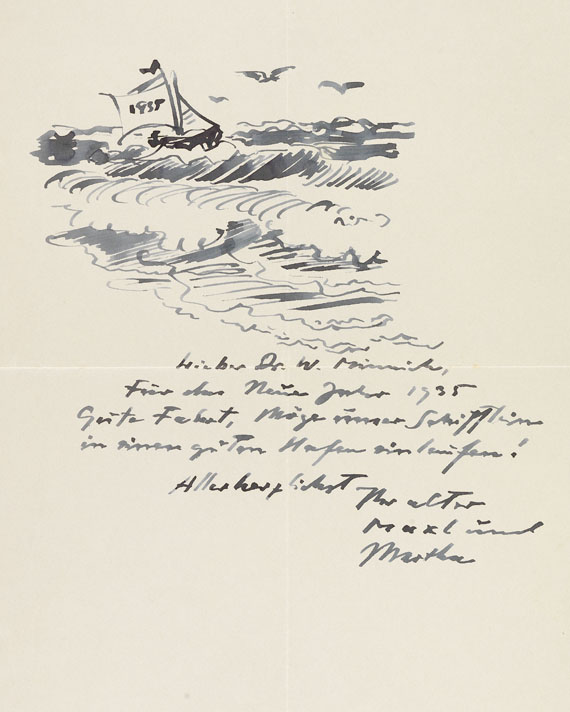 1935
Lieber Dr. W. Minnich,
Für das Neue Jahr 1935
Gute Fahrt, Möge unser Schifflein
in einen guten Hafen einlaufen!
Allerherzlichst Ihr alter
Maxl und
Martha